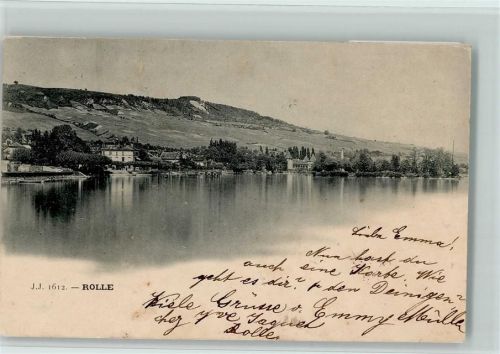 J.J. 1612. — ROLLE
Liebe Emma!
Nun hast du
auch eine Karte. Wie
geht es dir? & den Deinigen?
Viele Grüsse v. Emmy Müller
Rolle